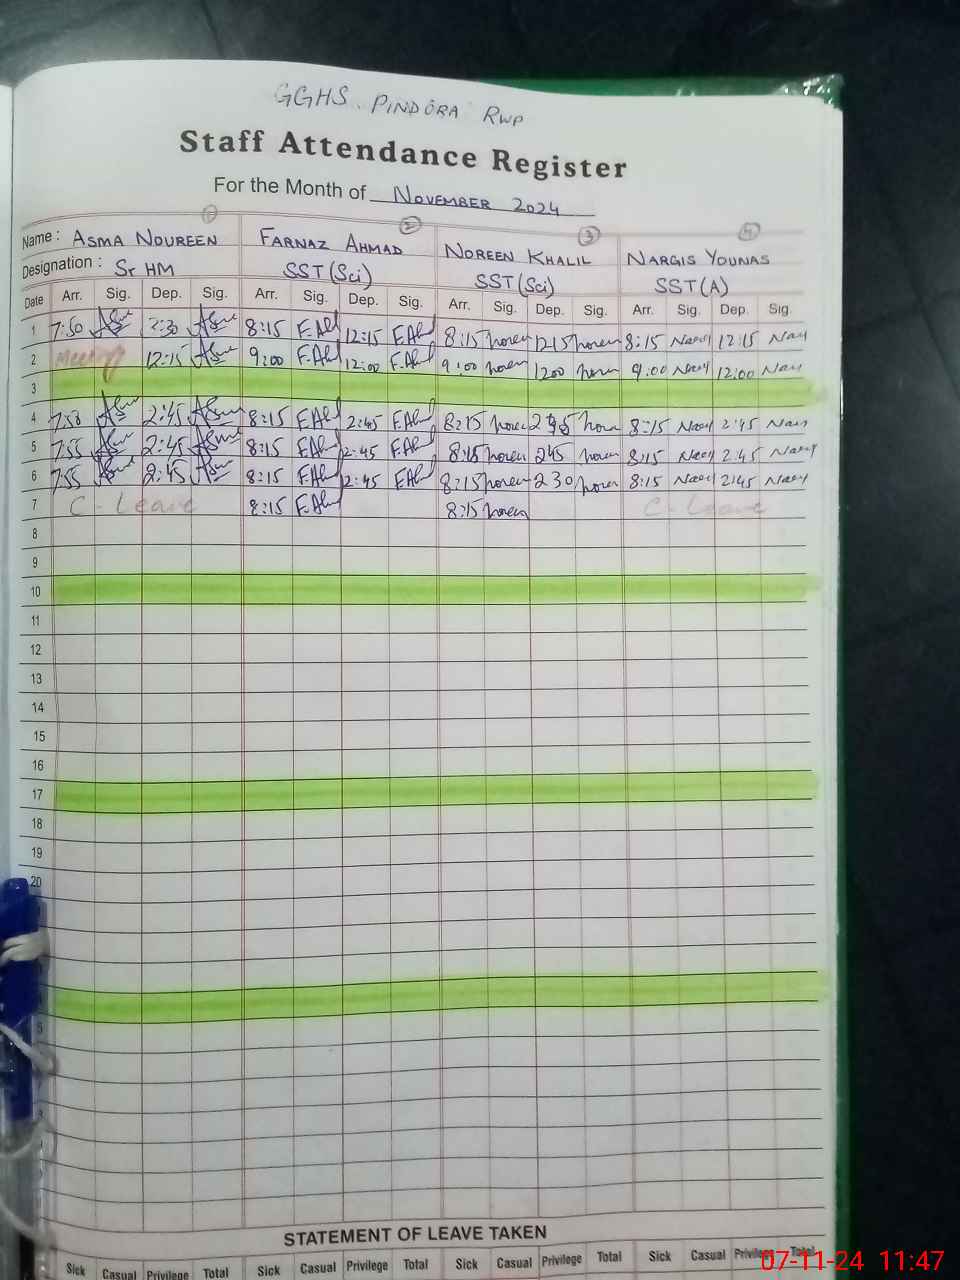 GGHS PINDORA RWP
Staff Attendance Register
For the Month of NOVEMBER 2024
1 2 3 4
Name : ASMA NOUREEN FARNAZ AHMAD NOREEN KHALIL NARGIS YOUNAS
Designation : Sr HM SST (Sci) SST (Sci) SST (A)
Date Arr. Sig. Dep. Sig. Arr. Sig. Dep. Sig. Arr. Sig. Dep. Sig. Arr. Sig. Dep. Sig.
1 7:50 2:30 8:15 F.Ah 12:15 F.Ah 8:15 noren 1215 noren 8:15 12:15
2 Meeting 12:15 9:00 F.Ah 12:00 F.Ah 9:00 noren 1200 9:00 12:00
3
4 7:58 2:45 8:15 F.Ah 2:45 F.Ah 8:15 noren 8:15 2:45
5 7:55 2:45 8:15 F.Ah 2:45 F.Ah 8:15 noren 245 noren 8:15 2:45
6 7:55 2:45 8:15 F.Ah 2:45 F.Ah 8:15 noren 230 noren 8:15 2:45
7 C - Leave 8:15 F.Ah 8:15 noren C - Leave
8
9
10
11
12
13
14
15
16
17
18
19
20
5
STATEMENT OF LEAVE TAKEN
Sick Casual Privilege Total Sick Casual Privilege Total Sick Casual Privilege Total Sick Casual Privilege Total
07-11-24 11:47